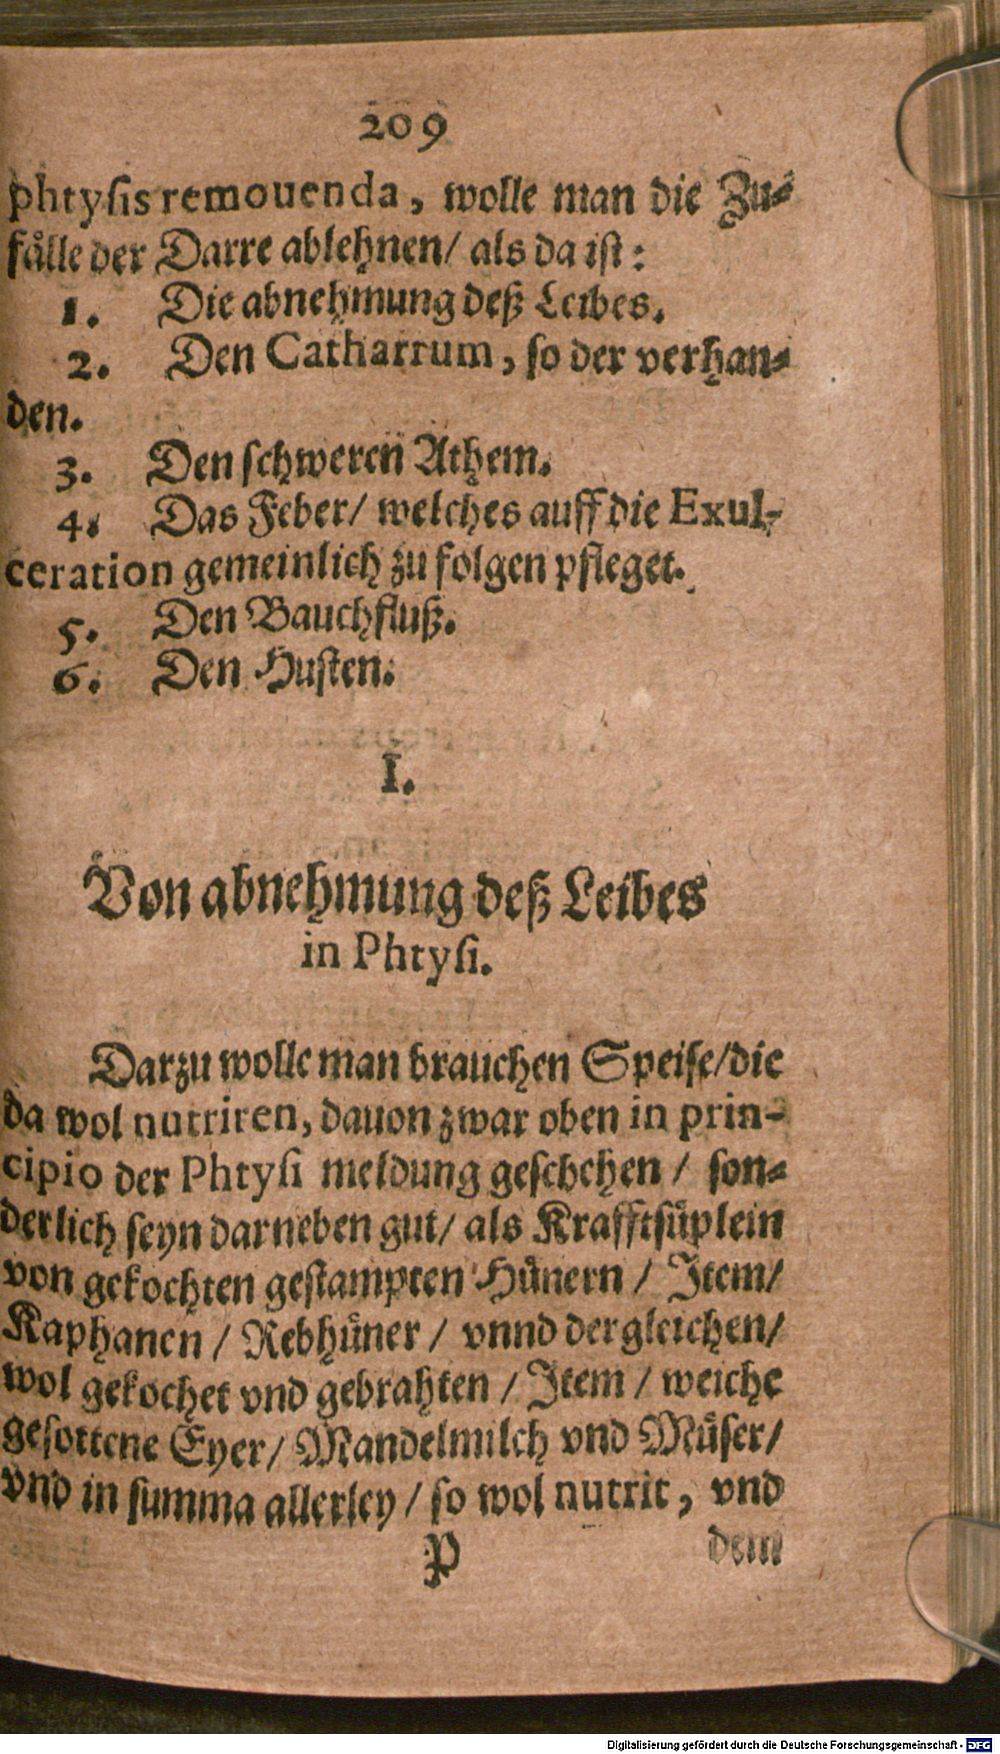 209
phtysis remouenda, wolle man die Zu-
fålle der Darre ablehnen/ als da ist:
1. Die abnehmung deß Leibes.
2. Den Catharrum, so der verhan-
den.
3. Den schweren Athem.
4. Das Feber/ welches auff die Exul-
ceration gemeinlich zu folgen pfleget.
5. Den Bauchfluß.
6. Den Husten.
I.
Von abnehmung deß Leibes
in Phtysi.
Darzu wolle man brauchen Speise/die
da wol nutriren, dauon zwar oben in prin-
cipio der Phtysi meldung geschehen / son-
derlich seyn darneben gut/ als Krafftsüplein
von gekochten gestampten Hünern / Item/
Kaphanen / Rebhüner / vnnd dergleichen/
wol gekochet vnd gebrahten / Item / weiche
gesottene Eyer/ Mandelmilch vnd Müser/
vnd in summa allerley / so wol nutrit, vnd
P dem
Digitalisierung gefördert durch die Deutsche Forschungsgemeinschaft - DFG